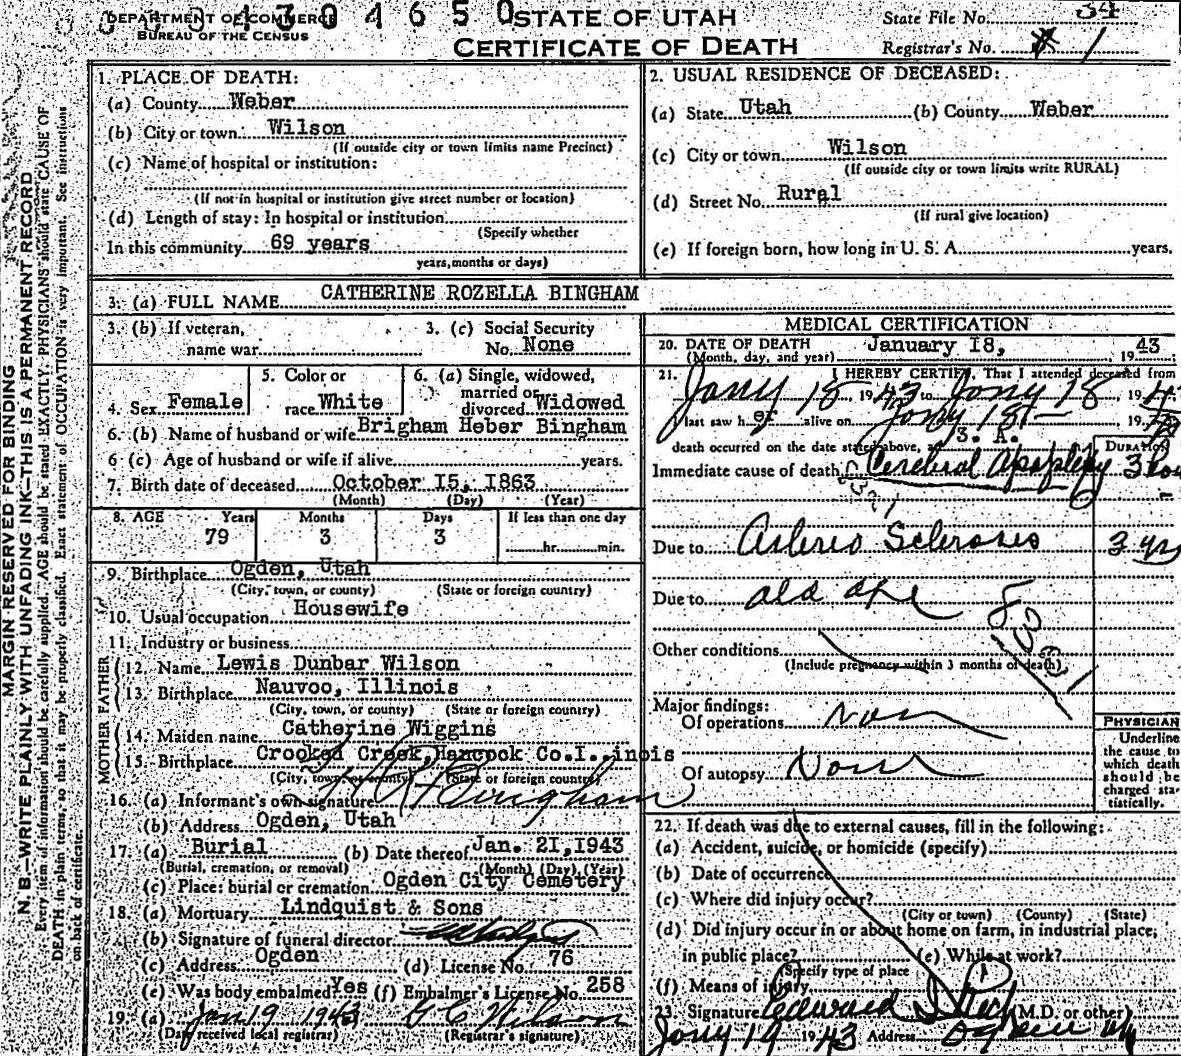 DEPARTMENT OF COMMERCE
BUREAU OF THE CENSUS
4 6 5 0
STATE OF UTAH
CERTIFICATE OF DEATH
State File No. 34
Registrar's No. 1
MARGIN RESERVED FOR BINDING
N. B.—WRITE PLAINLY WITH UNFADING INK—THIS IS A PERMANENT RECORD
Every item of information should be carefully supplied. AGE should be stated EXACTLY. PHYSICIANS should state CAUSE OF
DEATH in plain terms, so that it may be properly classified. Exact statement of OCCUPATION is very important. See instructions
on back of certificate.
1. PLACE OF DEATH:
(a) County Weber
(b) City or town Wilson
(If outside city or town limits name Precinct)
(c) Name of hospital or institution:
(If not in hospital or institution give street number or location)
(d) Length of stay: In hospital or institution
(Specify whether
In this community 69 years
years, months or days)
2. USUAL RESIDENCE OF DECEASED:
(a) State Utah (b) County Weber
(c) City or town Wilson
(If outside city or town limits write RURAL)
(d) Street No. Rural
(If rural give location)
(e) If foreign born, how long in U. S. A. years.
3. (a) FULL NAME CATHERINE ROZELLA BINGHAM
3. (b) If veteran,
name war
3. (c) Social Security
No. None
4. Sex Female
5. Color or
race White
6. (a) Single, widowed,
married or
divorced Widowed
6. (b) Name of husband or wife Brigham Heber Bingham
6 (c) Age of husband or wife if alive years.
7. Birth date of deceased October 15, 1863
(Month) (Day) (Year)
8. AGE Years Months Days If less than one day
79 3 3 hr. min.
9. Birthplace Ogden, Utah
(City, town, or county) (State or foreign country)
10. Usual occupation Housewife
11. Industry or business
FATHER
12. Name Lewis Dunbar Wilson
13. Birthplace Nauvoo, Illinois
(City, town, or county) (State or foreign country)
MOTHER
14. Maiden name Catherine Wiggins
15. Birthplace Crooked Creek, Hancock Co. I..inois
(City, town, or county) (State or foreign country)
16. (a) Informant's own signature Bingham
(b) Address Ogden, Utah
17. (a) Burial (b) Date thereof Jan. 21, 1943
(Burial, cremation, or removal) (Month) (Day) (Year)
(c) Place: burial or cremation Ogden City Cemetery
18. (a) Mortuary Lindquist & Sons
(b) Signature of funeral director
(c) Address Ogden (d) License No. 76
(e) Was body embalmed? Yes (f) Embalmer's License No. 258
19. (a) Jan 19 1943 Wilson
(Date received local registrar) (Registrar's signature)
MEDICAL CERTIFICATION
20. DATE OF DEATH January 18, 1943
(Month, day, and year)
21. I HEREBY CERTIFY That I attended deceased from
Jany 18 1943 to Jany 18 1943
I last saw her alive on Jany 18 19
death occurred on the date stated above, at 3. A.
DURATION
Immediate cause of death Cerebral Apoplexy 3
Due to Arterio Sclerosis 3 yrs
Due to old age
Other conditions
(Include pregnancy within 3 months of death)
Major findings:
Of operations
Of autopsy
PHYSICIAN
Underline
the cause to
which death
should be
charged sta-
tistically.
22. If death was due to external causes, fill in the following:
(a) Accident, suicide, or homicide (specify)
(b) Date of occurrence
(c) Where did injury occur?
(City or town) (County) (State)
(d) Did injury occur in or about home on farm, in industrial place,
in public place? (e) While at work?
(Specify type of place
(f) Means of injury
23. Signature Edward I Rich (M.D. or other)
Jany 19 1943 Address Ogden